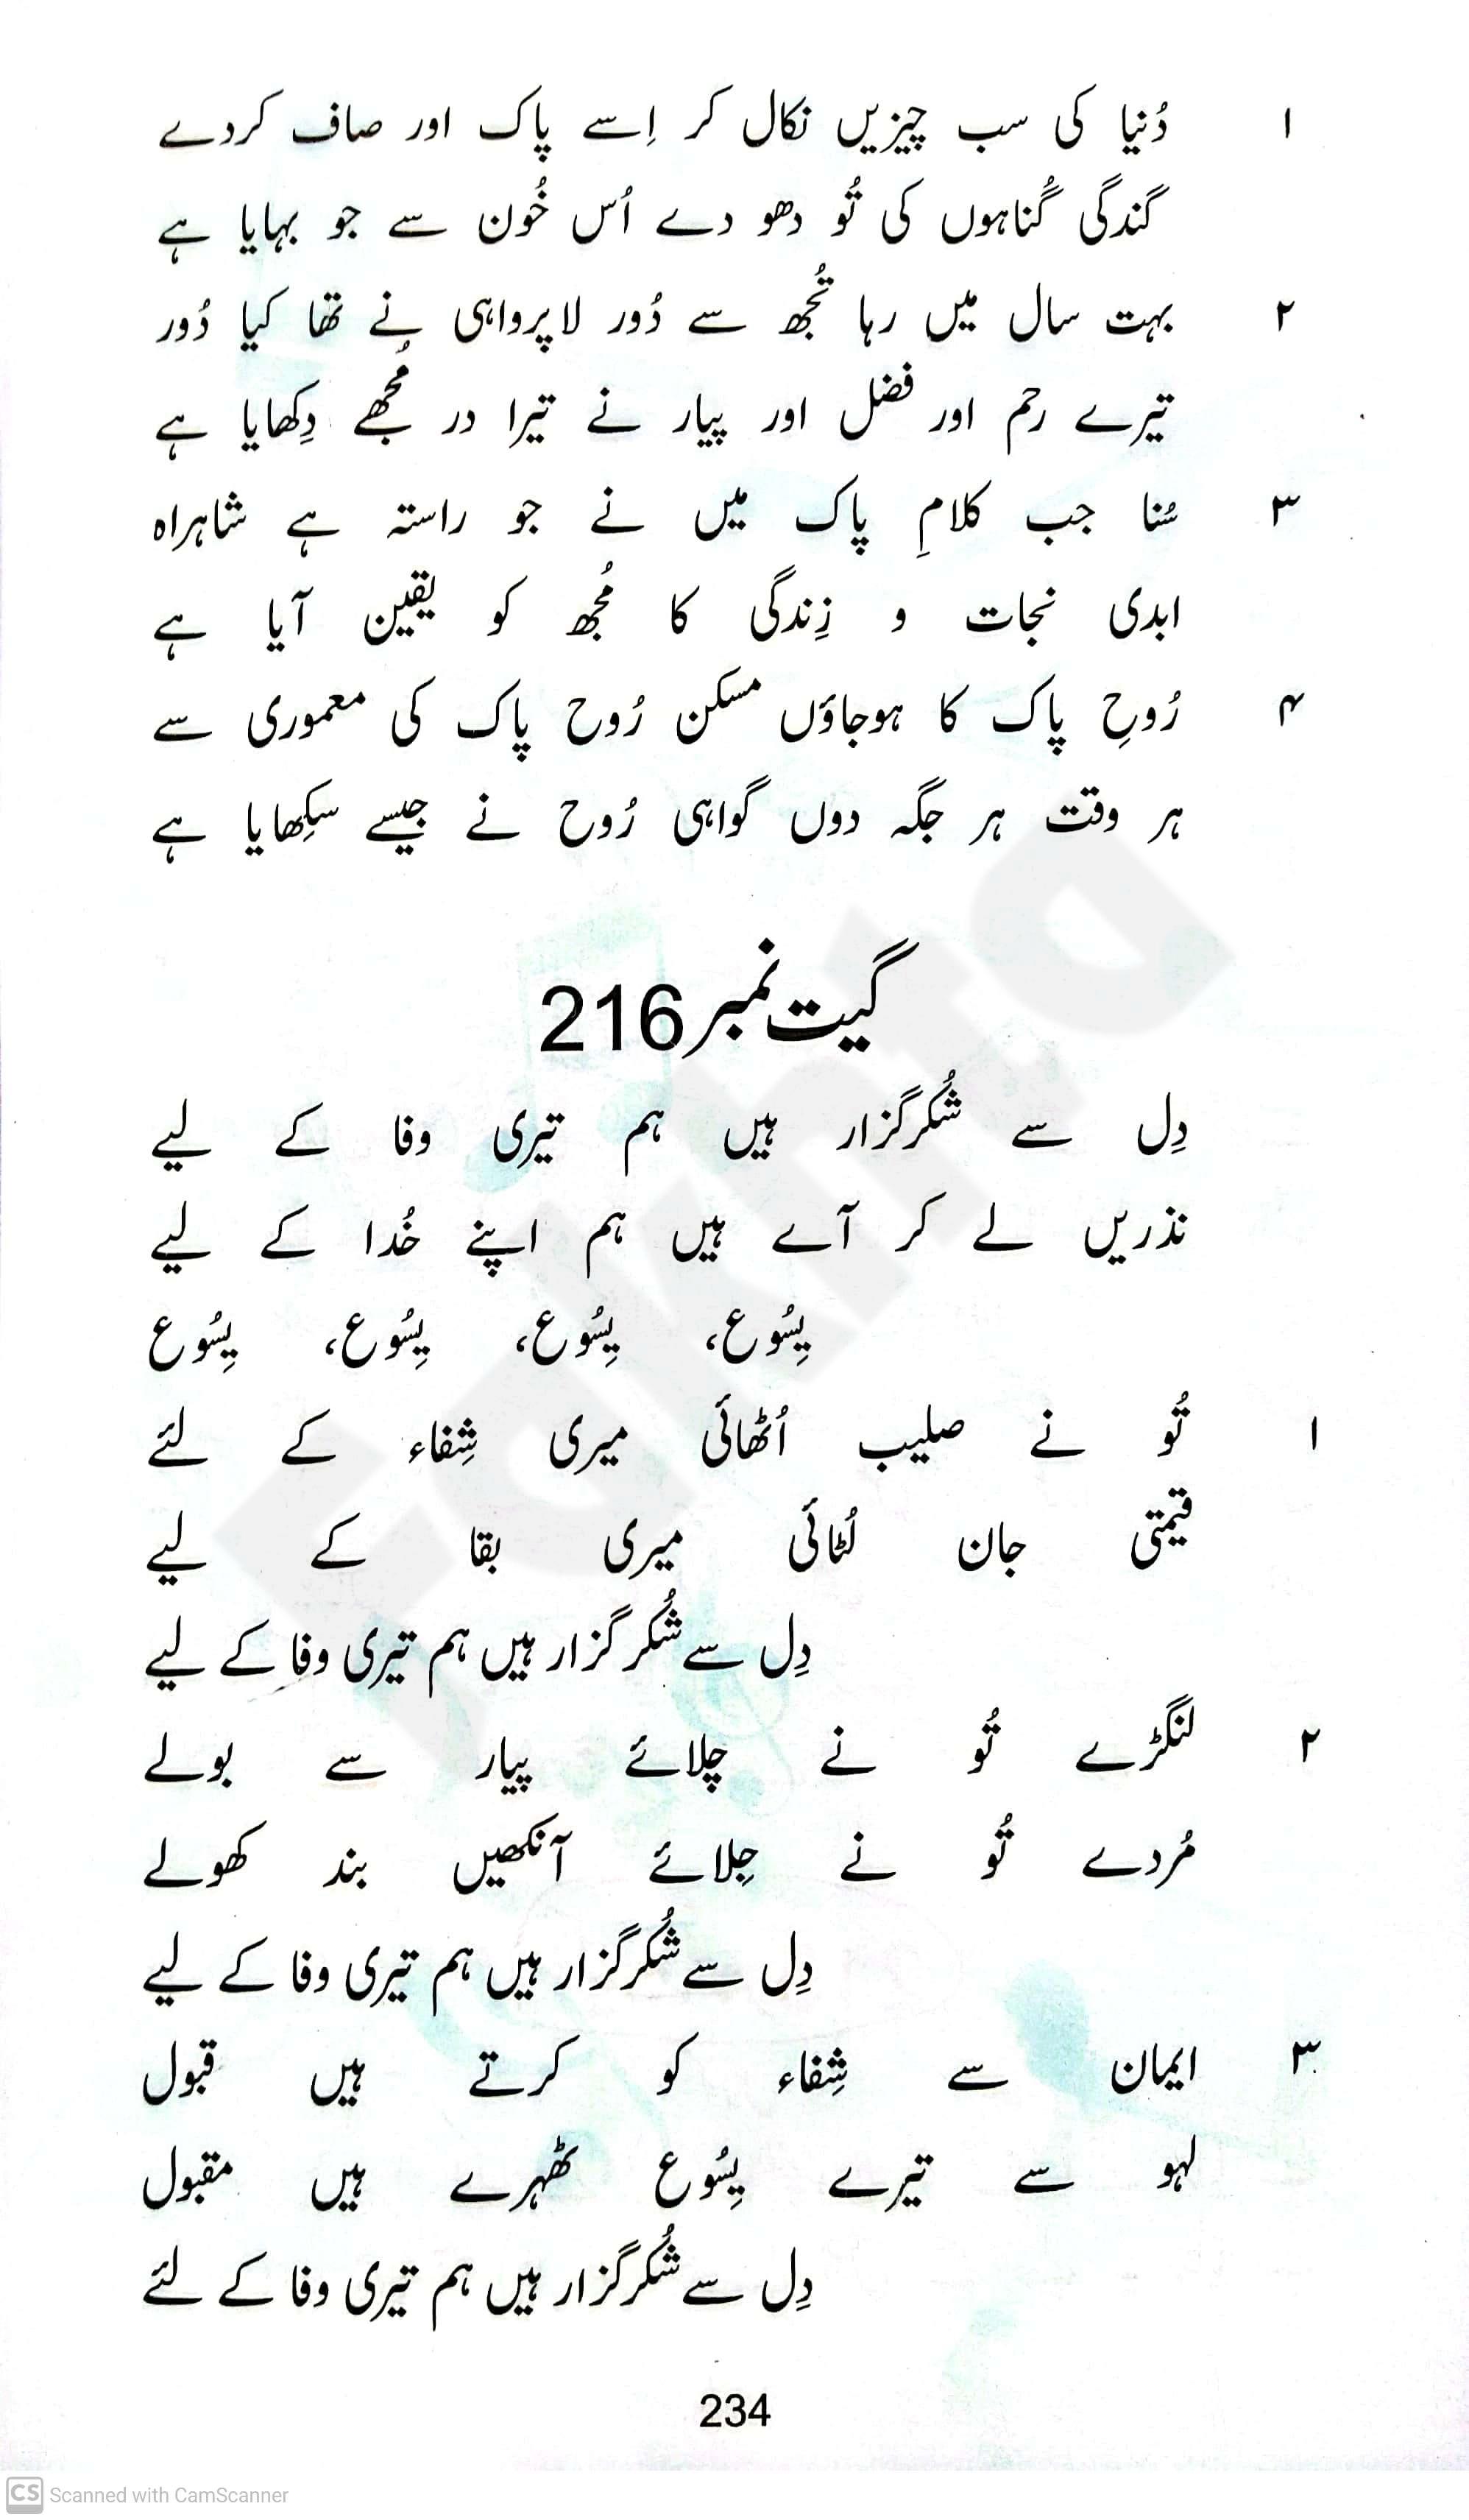 ۱ دُنیا کی سب چیزیں نکال کر اِسے پاک اور صاف کردے
گندگی گُناہوں کی تُو دھو دے اُس خُون سے جو بہایا ہے
۲ بہت سال میں رہا تُجھ سے دُور لاپرواہی نے تھا کیا دُور
تیرے رحم اور فضل اور پیار نے تیرا در مُجھے دِکھایا ہے
۳ سُنا جب کلامِ پاک میں نے جو راستہ ہے شاہراہ
ابدی نجات و زِندگی کا مُجھ کو یقین آیا ہے
۴ رُوحِ پاک کا ہوجاؤں مسکن رُوح پاک کی معموری سے
ہر وقت ہر جگہ دوں گواہی رُوح نے جیسے سکِھایا ہے
گیت نمبر 216
دِل سے شُکرگزار ہیں ہم تیری وفا کے لیے
نذریں لے کر آے ہیں ہم اپنے خُدا کے لیے
یِسُوع، یِسُوع، یِسُوع، یِسُوع
۱ تُو نے صلیب اُٹھائی میری شِفاء کے لئے
قیمتی جان لُٹائی میری بقا کے لیے
دِل سے شُکرگزار ہیں ہم تیری وفا کے لیے
۲ لنگڑے تُو نے چلائے پیار سے بولے
مُردے تُو نے جِلائے آنکھیں بند کھولے
دِل سے شُکرگزار ہیں ہم تیری وفا کے لیے
۳ ایمان سے شِفاء کو کرتے ہیں قبول
لہو سے تیرے یِسُوع ٹھہرے ہیں مقبول
دِل سے شُکرگزار ہیں ہم تیری وفا کے لئے
234
CS Scanned with CamScanner